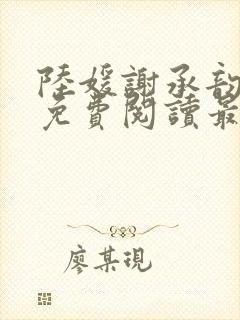 陸媛謝承
免費閱讀最
廖某現